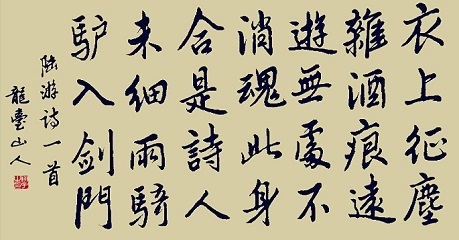 衣上征塵
雜酒痕遠
遊無處不
消魂此身
合是詩人
未細雨騎
驴入剑門
陆游诗一首
龍臺山人